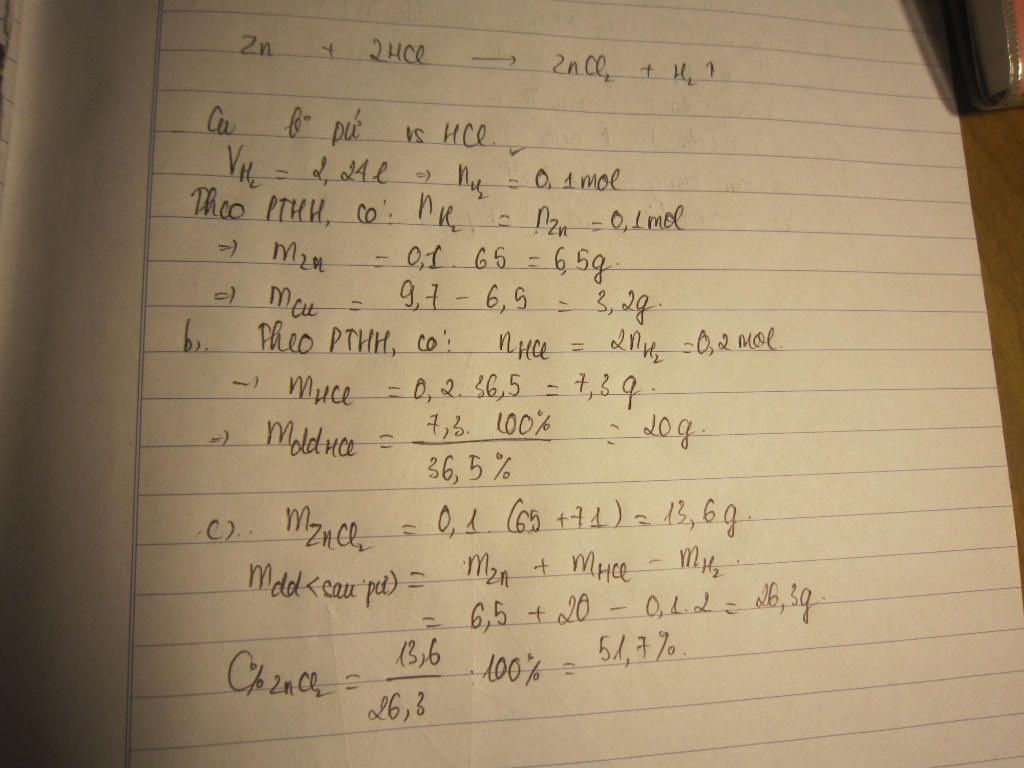 Zn + 2HCl → ZnCl₂ + H₂ ↑
Cu k° pứ vs HCl.
V_H₂ = 2,24l ⇒ n_H₂ = 0,1mol
Theo PTHH, có: n_H₂ = n_Zn = 0,1mol
⇒ m_Zn = 0,1 . 65 = 6,5g.
⇒ m_Cu = 9,7 - 6,5 = 3,2g.
b). Theo PTHH, có: n_HCl = 2n_H₂ = 0,2 mol.
→ m_HCl = 0,2 . 36,5 = 7,3 g.
⇒ m_ddHCl = 7,3 . 100% / 36,5% = 20g.
c). m_ZnCl₂ = 0,1 . (65 + 71) = 13,6 g.
m_dd(sau pứ) = m_Zn + m_HCl - m_H₂.
= 6,5 + 20 - 0,1.2 = 26,3g.
C% ZnCl₂ = 13,6 / 26,3 . 100% = 51,7%.